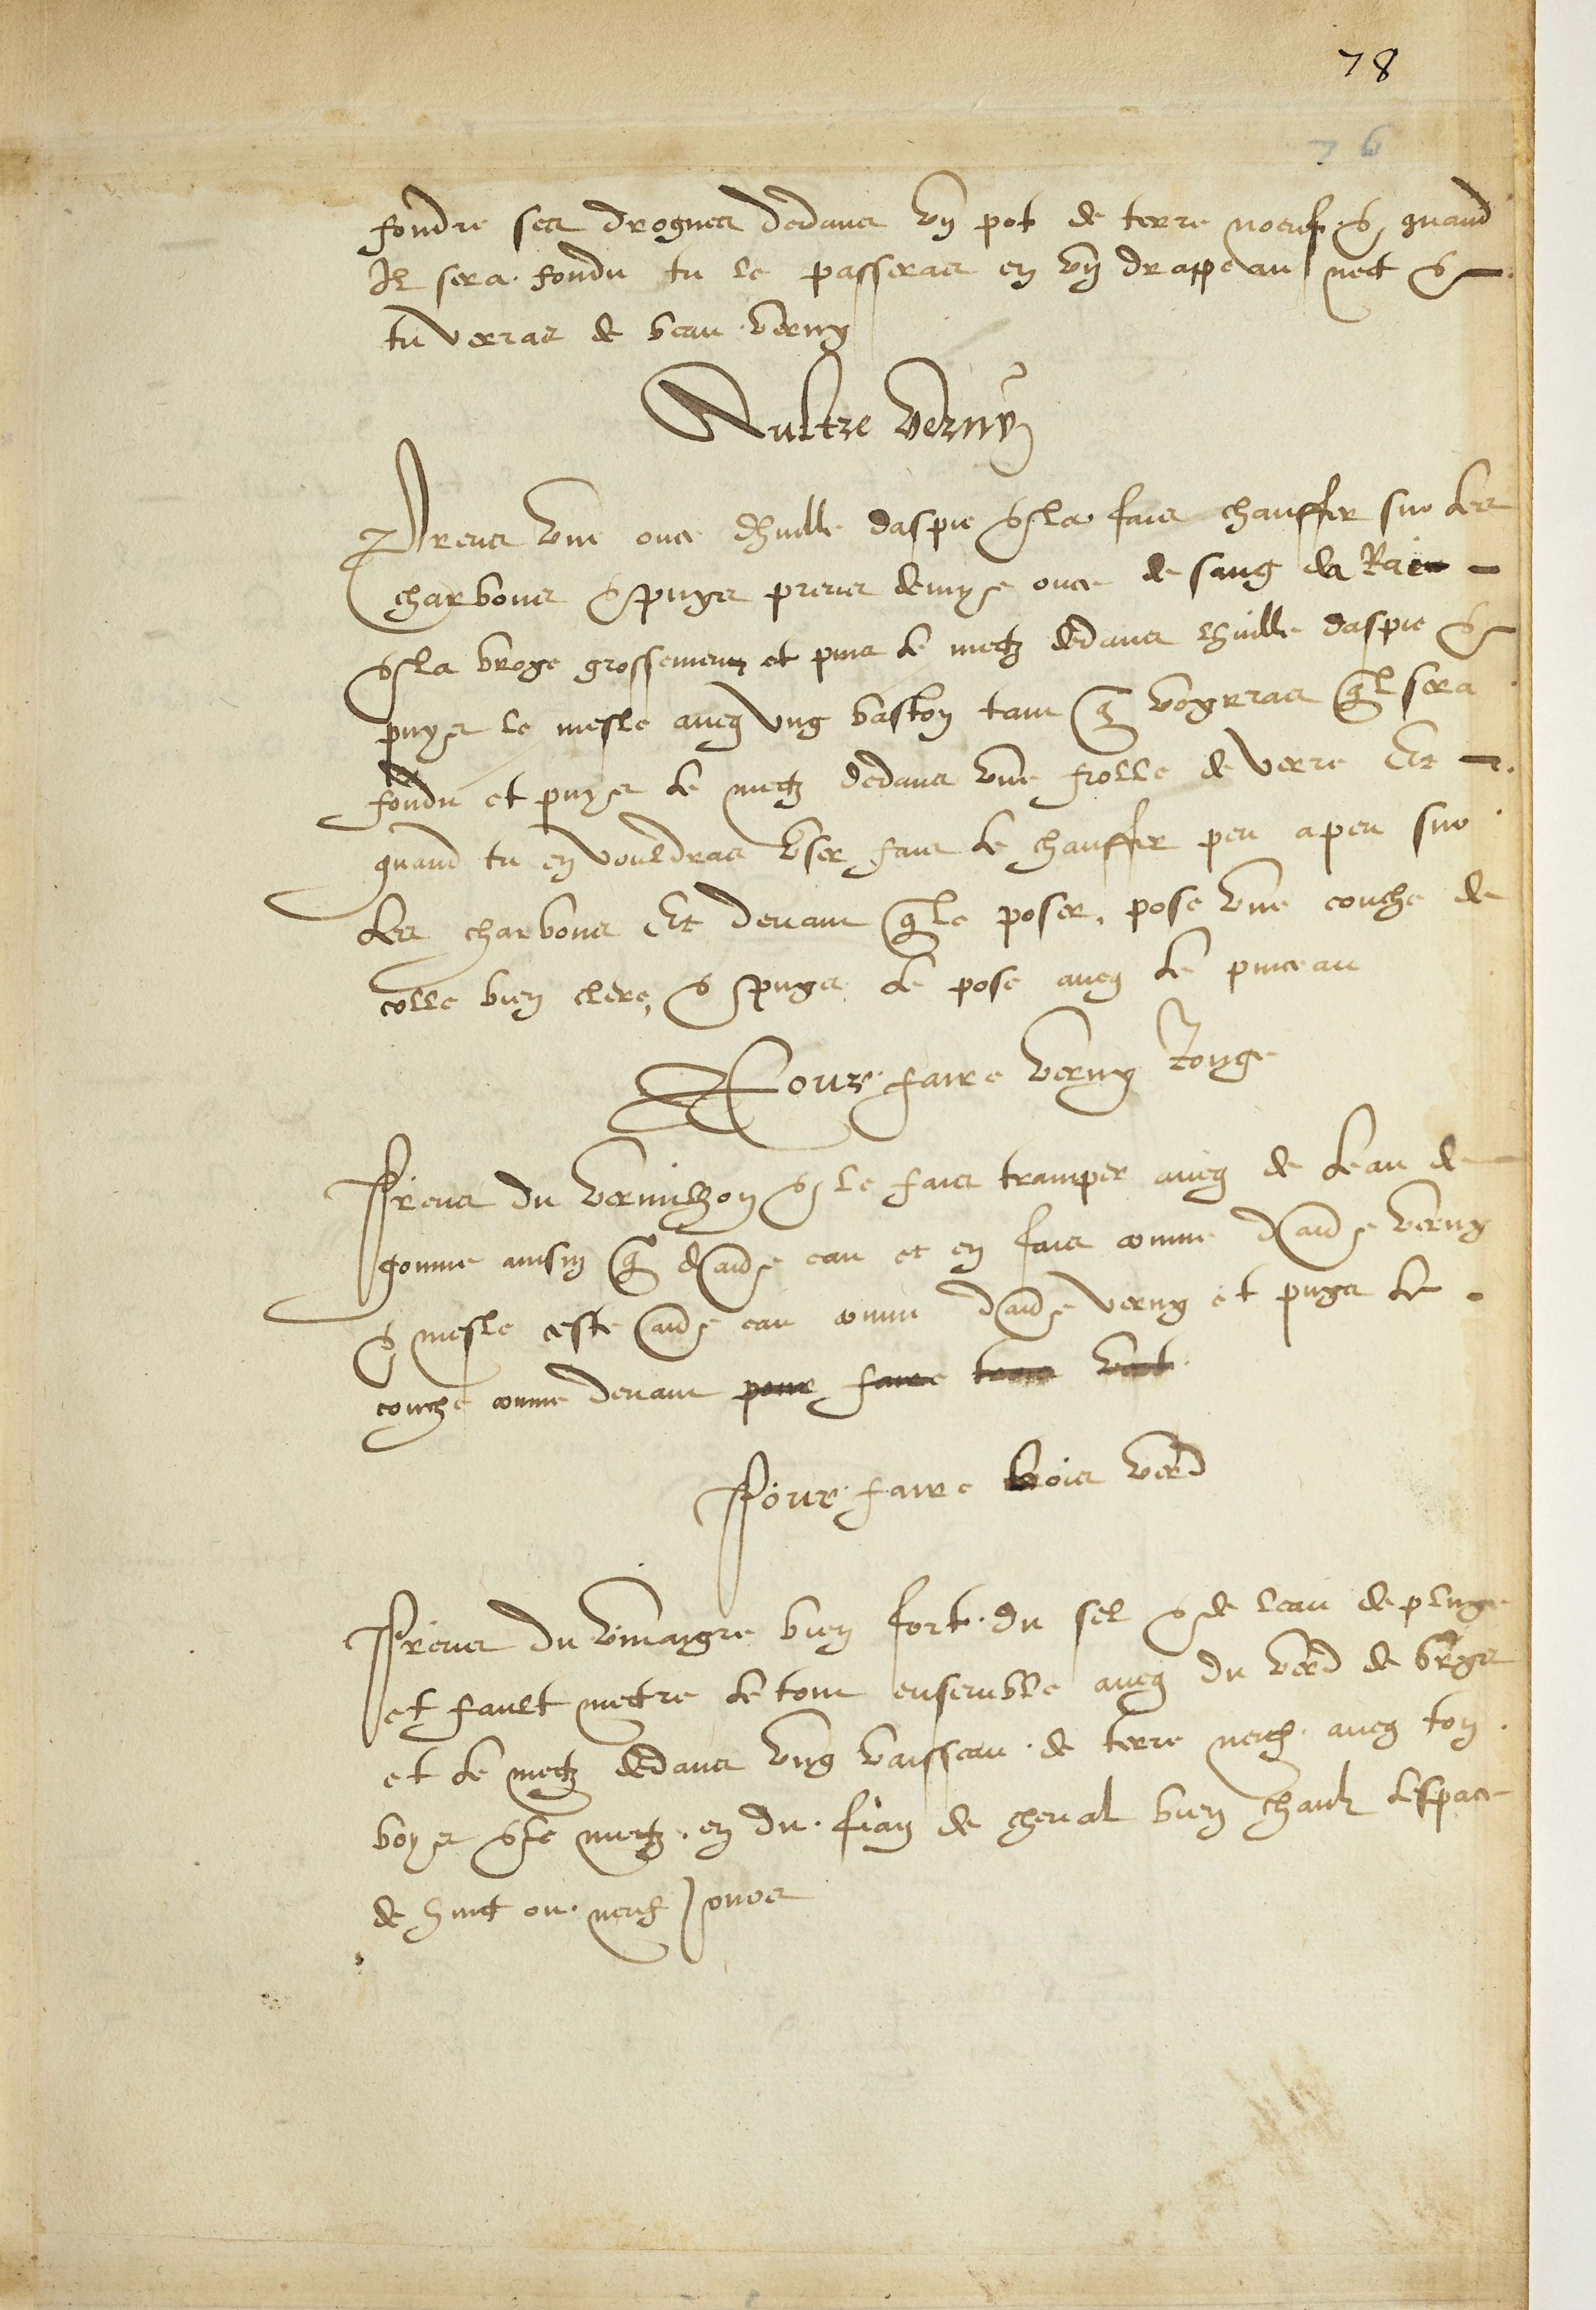 78
76
fondre ses drogues dedans vn pot de terre noeuf & quand
Il sera fondu tu le passeras en vn drappeau nect &
tu verras de beau verny
Aultre verny
Prens vne once dhuille daspic & la fais chauffer sur les
charbons & puys prens demye once de sang da
& la broye grossement et puis le metz dedans lhuille daspic &
puys le mesle aueq vng baston tant q voyrras ql sera
fondu et puys le metz dedans vne fiolle de verre Et
quand tu en vouldras vser fais le chauffer peu a peu sur
les charbons Et deuant q le poser, pose vne couche de
colle bien clere, & puys le pose aueq le pinceau
Pour faire verny Rouge
Prens du vermilhon & le fais tramper aueq de leau de
gomme ainsin q eau et en fais comme verny
& mesle ceste eau comme verny et puys le
couche comme deuant pour faire
Pour faire bois verd
Prens du vinaygre bien fort du sel & de leau de pluye
et fault mettre le tout ensemble aueq du verd de
et le metz dedans vng vaisseau de terre neuf aueq ton
boys & le metz en du fian de cheual bien chault lespace
de huict ou neuf Jours